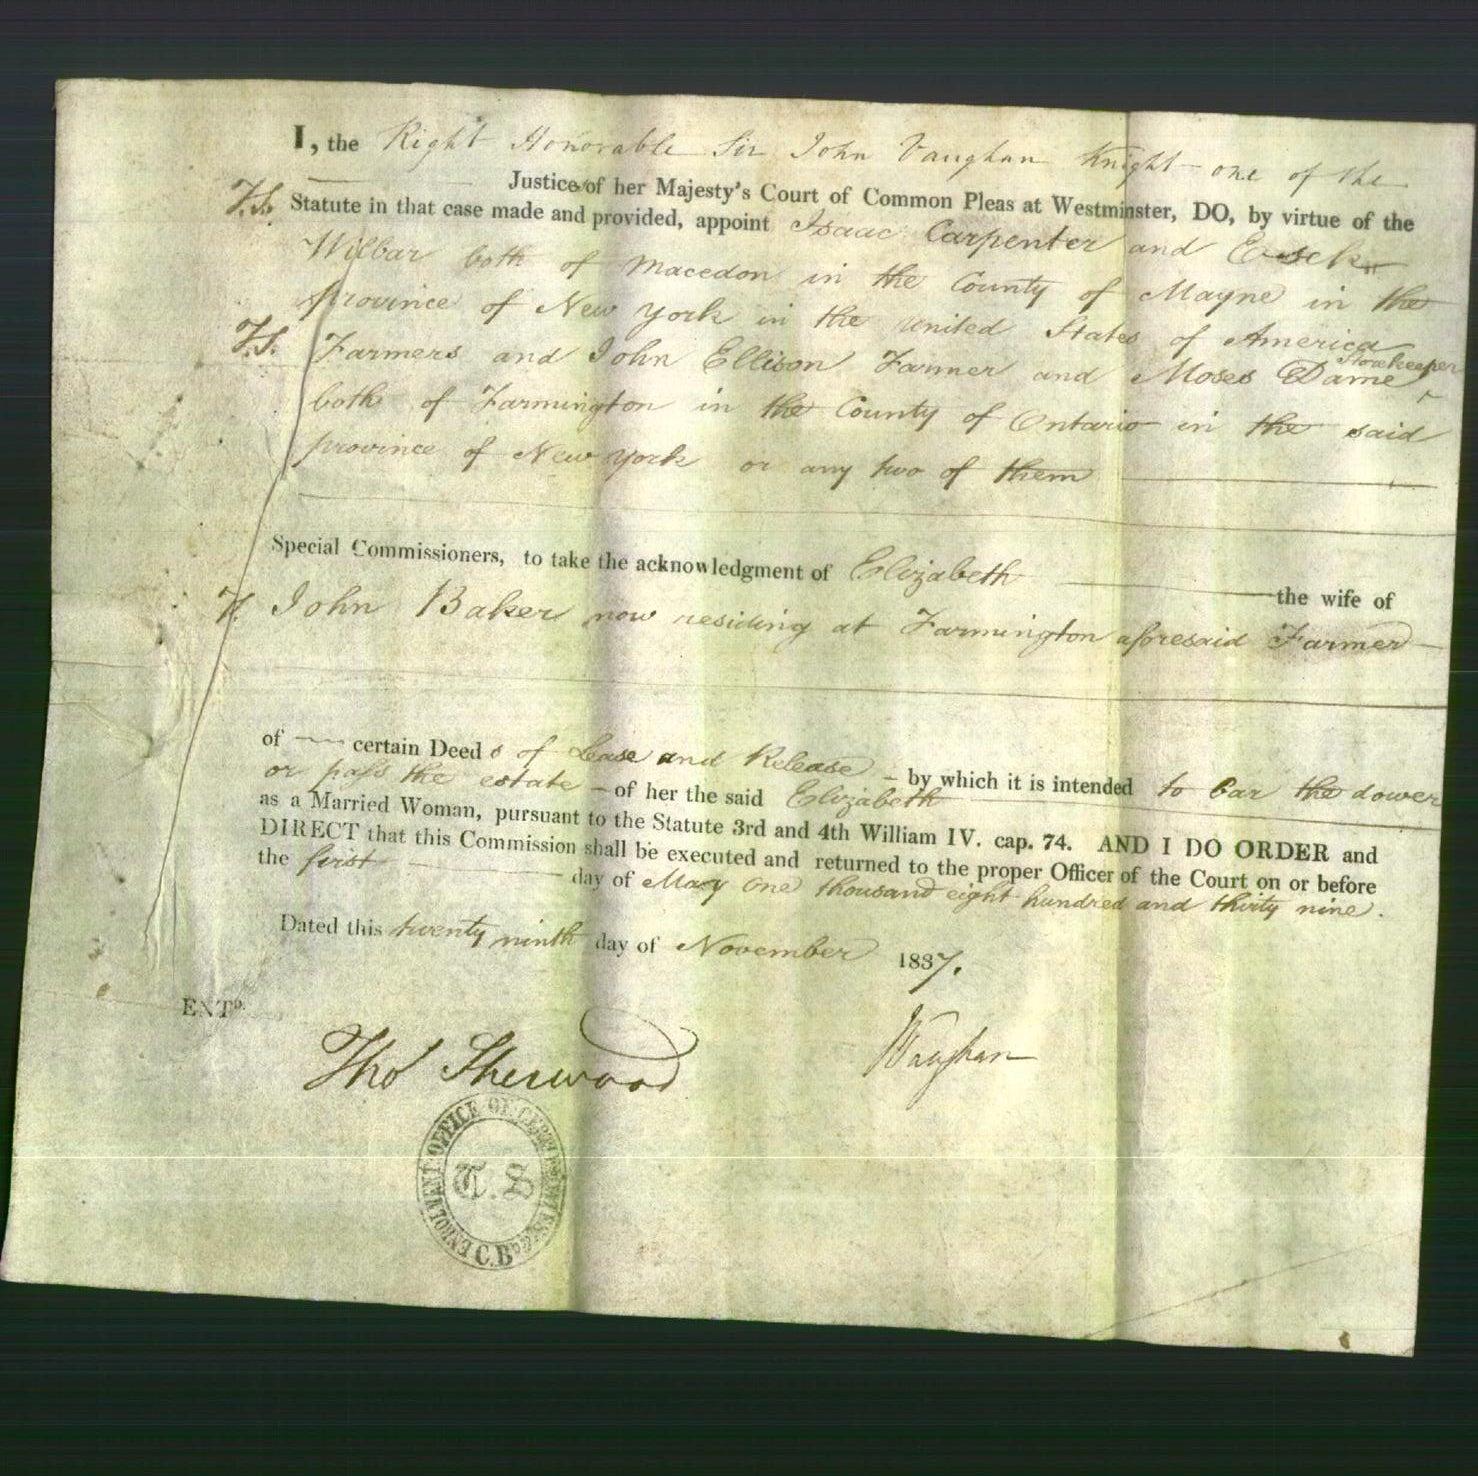 I, the Right Honorable Sir John Vaughan Knight one of the
Justices of her Majesty's Court of Common Pleas at Westminster, DO, by virtue of the
T.S. Statute in that case made and provided, appoint Isaac Carpenter and Esek
Wilbar both of Macedon in the County of Mayne in the
province of New York in the United States of America
T.S. Farmers and John Ellison Farmer and Moses Dame Storekeeper
both of Farmington in the County of Ontario in the said
province of New York or any two of them
Special Commissioners, to take the acknowledgment of Elizabeth the wife of
John Baker now residing at Farmington aforesaid Farmer
of certain Deeds of Lease and Release by which it is intended to bar the dower
or pass the estate of her the said Elizabeth
as a Married Woman, pursuant to the Statute 3rd and 4th William IV. cap. 74. AND I DO ORDER and
DIRECT that this Commission shall be executed and returned to the proper Officer of the Court on or before
the first day of May One thousand eight hundred and thirty nine.
Dated this twenty ninth day of November 1837.
ENTD.
Thos Sherwood
J Vaughan
ENROLMENT OFFICE OF CERTIFICATES &c
T.S
C.B